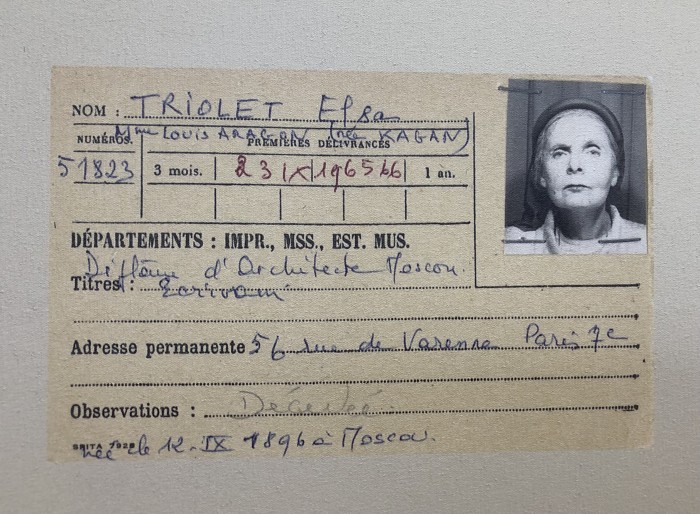 NOM : TRIOLET Elsa
Mme LOUIS ARAGON (née KAGAN)
NUMÉROS. PREMIÈRES DÉLIVRANCES
51823 3 mois. 23 IX 1965 66 1 an.
DÉPARTEMENTS : IMPR., MSS., EST. MUS.
Diplôme d'Architecte Moscou.
Titres : Ecrivain
Adresse permanente 56 rue de Varenne Paris 7e
Observations : Décédée
née le 12-IX 1896 à Moscou.